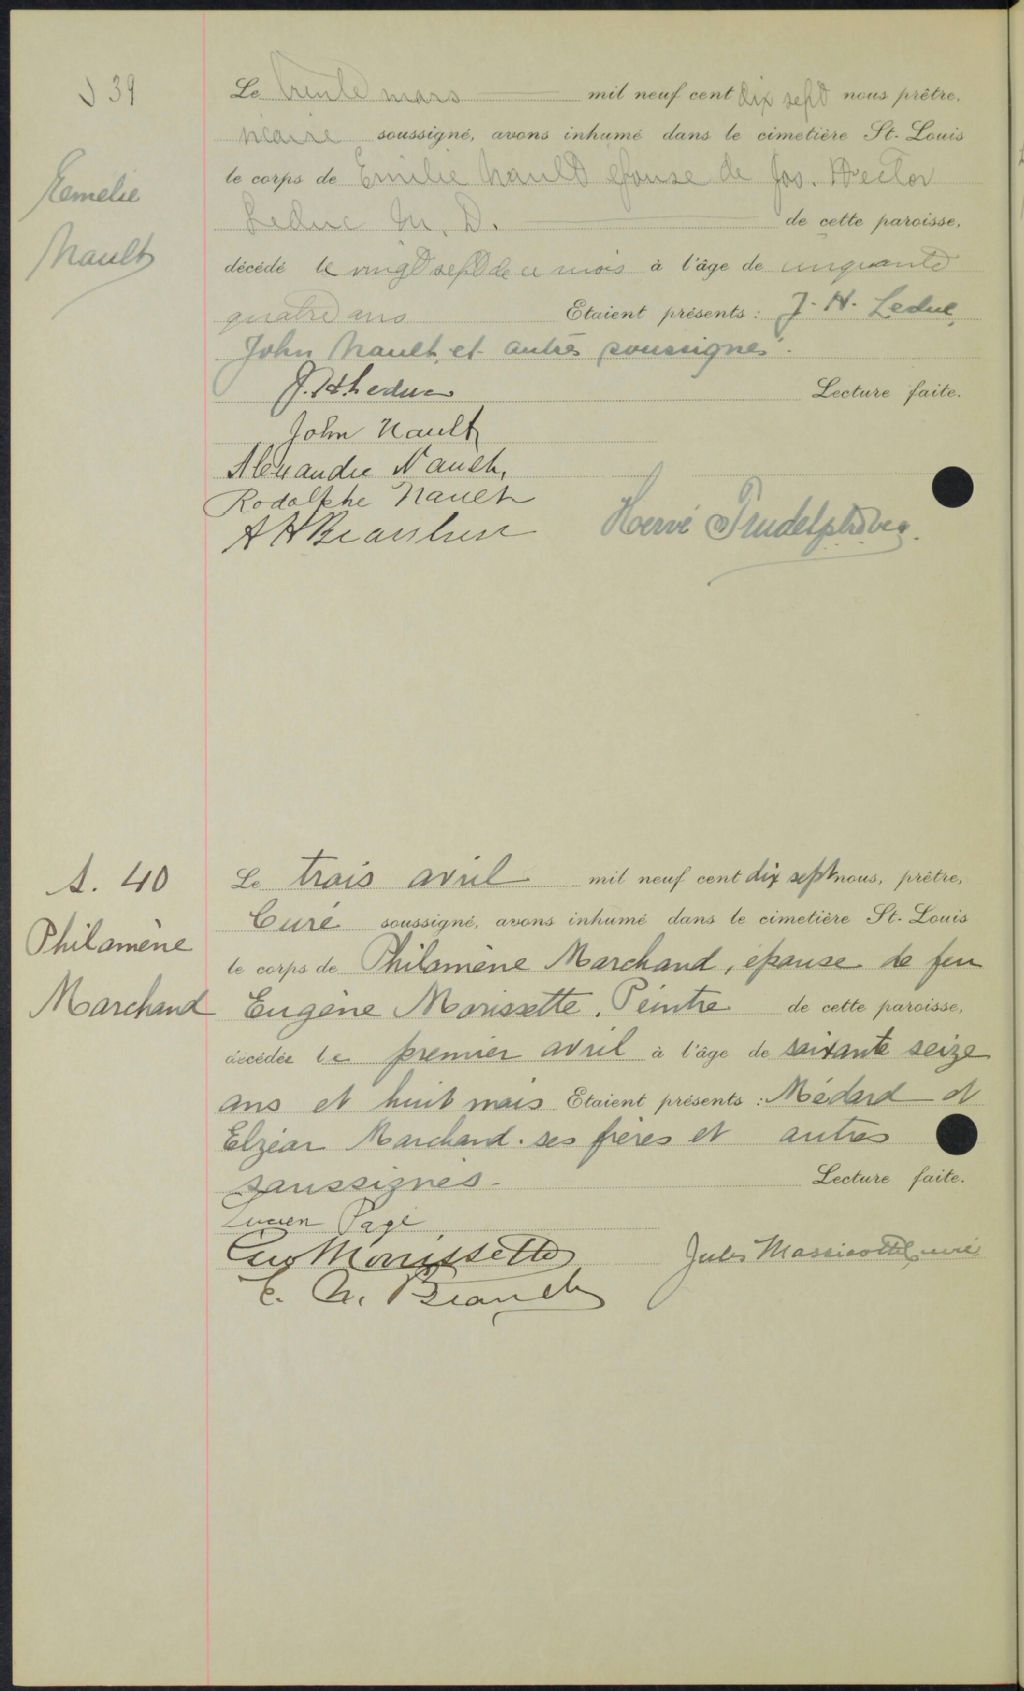 S 39
Emelie
Nault
Le trente mars mil neuf cent dix sept nous prêtre,
vicaire soussigné, avons inhumé dans le cimetière St-Louis
le corps de Emilie Nault épouse de Jos. Hector
Leduc M. D. de cette paroisse,
décédé le vingt sept de ce mois à l'âge de cinquante
quatre ans Etaient présents : J. H. Leduc,
John Nault, et autres soussignés.
J. H. Leduc Lecture faite.
John Nault
Alexandre Nault,
Rodolphe Nault
Hervé Trudel ptre vic.
S. 40
Philomène
Marchand
Le trois avril mil neuf cent dix sept nous, prêtre,
Curé soussigné, avons inhumé dans le cimetière St-Louis
le corps de Philomène Marchand, épouse de feu
Eugène Morissette, Peintre de cette paroisse,
décédée le premier avril à l'âge de soixante seize
ans et huit mois Etaient présents : Médard et
Elzéar Marchand. ses frères et autres
soussignés. Lecture faite.
Lucien Pagé
Geo Morrissette
Jules Massicotte Curé